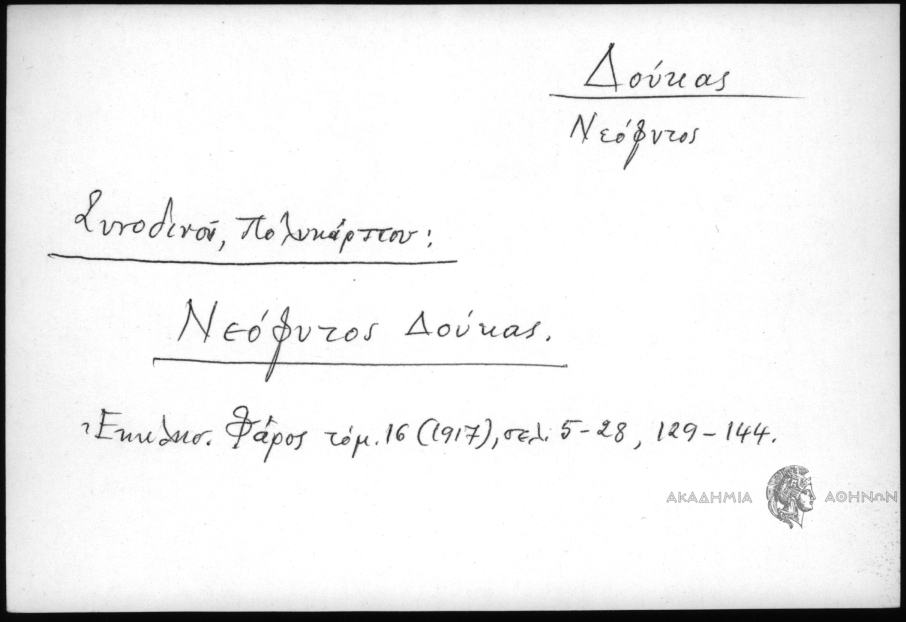 Δούκας
Νεόφυτος
Συνοδινοῦ, Πολυκάρπου:
Νεόφυτος Δούκας.
Ἐκκλησ. Φάρος τόμ. 16 (1917), σελ. 5-28, 129-144.
ΑΚΑΔΗΜΙΑ ΑΘΗΝΩΝ